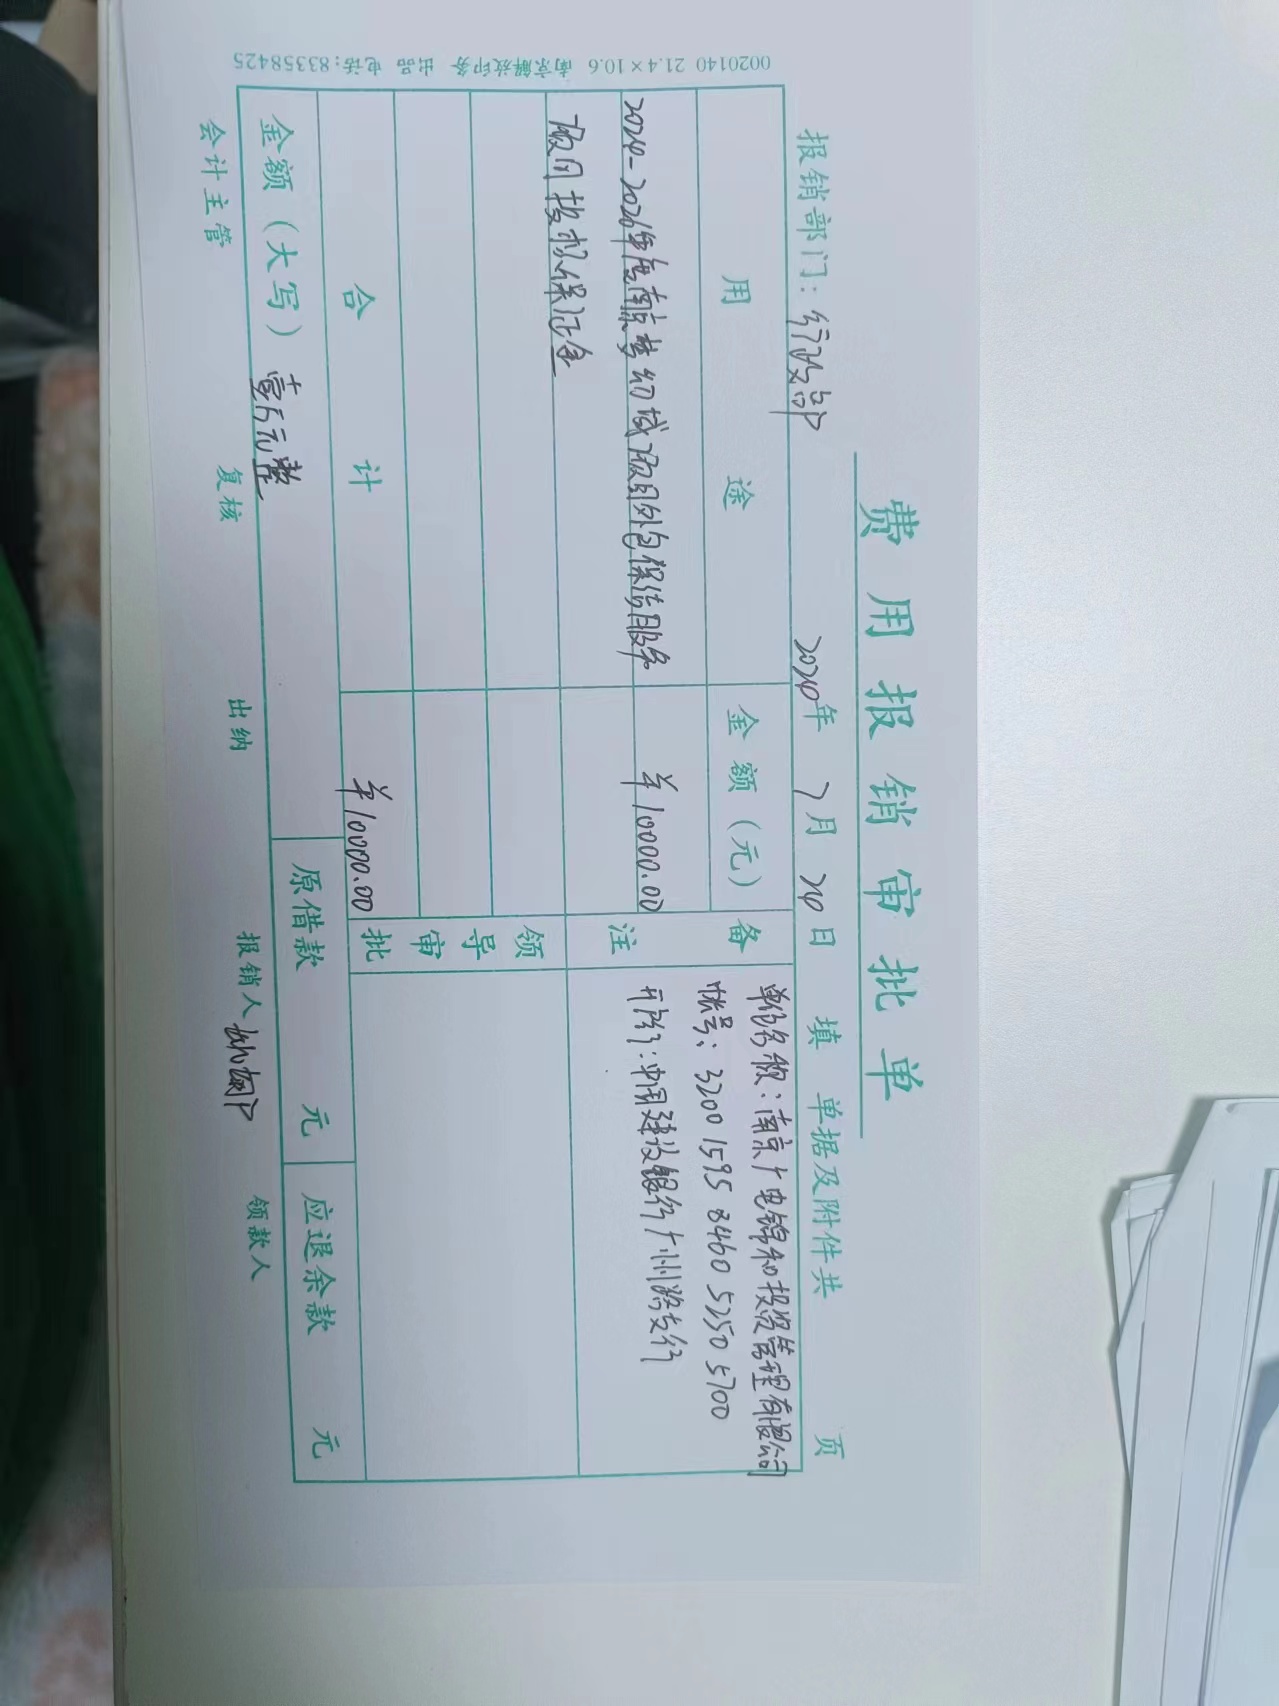 费用报销审批单
报销部门：行政部 2024年 7月 24日 填 单据及附件共 页
用途 金额（元） 备注
2024-2026年度南京梦幻城项目外包保洁服务 ¥10000.00
项目投标保证金
单位名称：南京广电锦和投资管理有限公司
帐号：3200 1595 8460 5250 5700
开户行：中国建设银行广州路支行
领导审批
合计 ¥10000.00
金额（大写）壹万元整 原借款 元 应退余款 元
会计主管 复核 出纳 报销人 领款人
0020140 21.4×10.6 南京解放印务 出品 电话：83358425